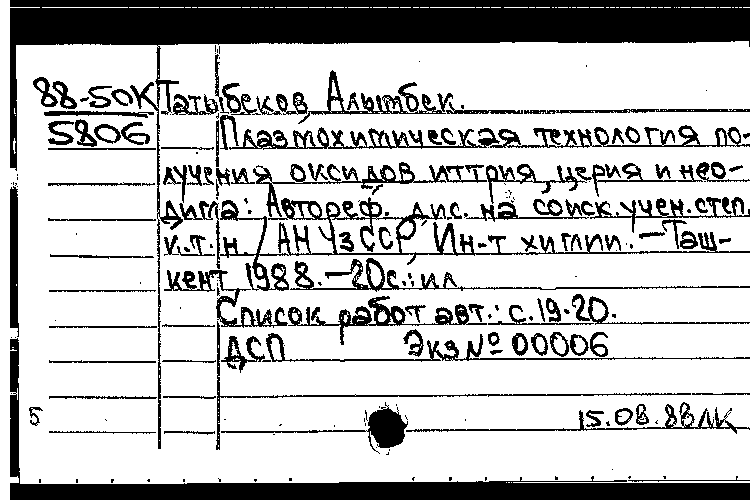 88-50К Татыбеков, Алымбек.
5806 Плазмохимическая технология по-
лучения оксидов иттрия, церия и нео-
дима: Автореф. дис. на соиск. учен. степ.
к.т.н. / АН УзССР, Ин-т химии. — Таш-
кент, 1988. — 20с.: ил.
Список работ авт.: с. 19-20.
ДСП Экз № 00006
5 15.08.88 ЛК